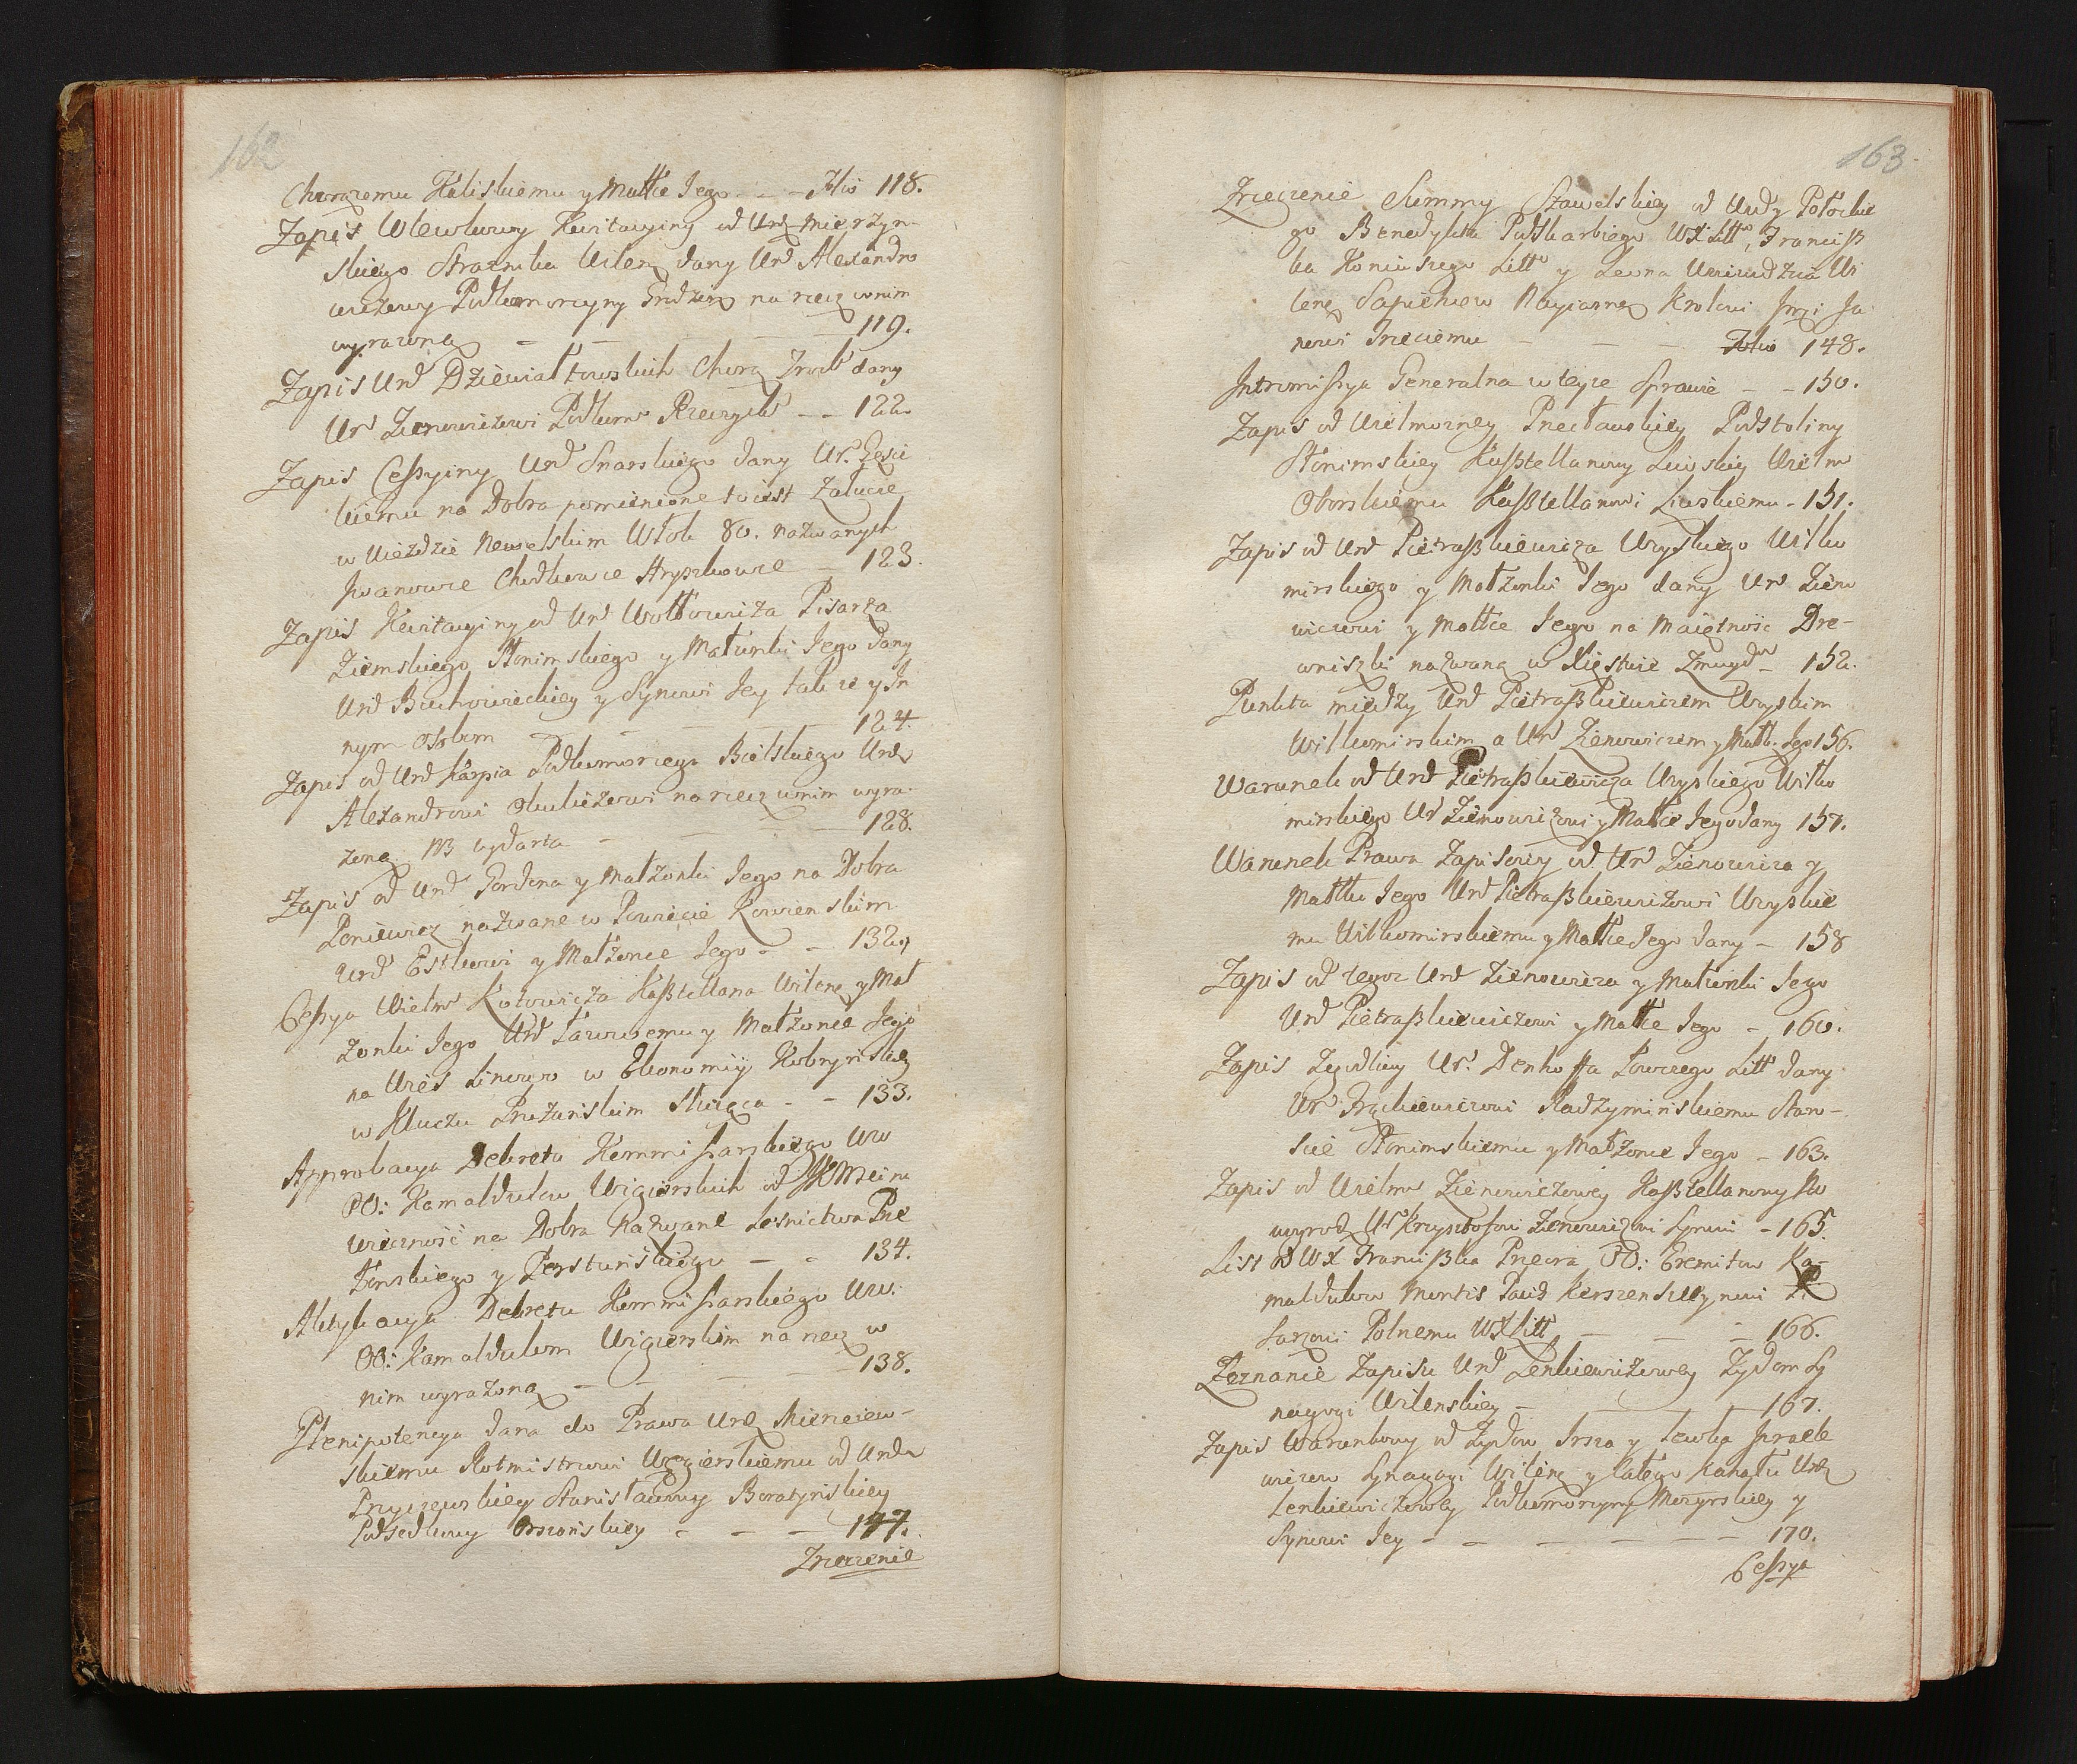 162
Chorążemu Kaliskiemu y Małłce Jego - - Folio 118.
Zapis Wlewkowy Kwitacyiny od Urz Mierzyn-
skiego Straznika Wilenᶻ dany Urd Alexandro
wiczowy Podkomorzyny Grodzienᶻ na rzecz w nim
wyrażoną - - - 119.
Zapis Urd Dziewiałtowskich Chorą Trock dany
Ur Zienowiczowi Podkomo Rzeczyck - - 122.
Zapis Cessyiny Urd Snarskiego dany Ur. Gąsi
kiemu na Dobra pomienione to iest Załucie
w Uieździe Newelskim Włok 80. nazwanych
Iwanowie Chodkowie Hryszkowie - 123.
Zapis Kwitacyiny od Urd Wołłowicza Pisarza
Ziemskiego Słonimskiego y Małżonki Jego dany
Urd Buchowieckiey y Synowi Jey także y In
nym Osobom - - - 124
Zapis od Urd Karpia Podkomorzego Bielskiego Urd
Alexandrowi Okuliczowi na rzecz w nim wyra-
żoną NB wydarta - - - 128.
Zapis od Urd Gordona y Małżonki Jego na Dobra
Poniewicz nazwane w Powiecie Kowienskim
Urd Estkowi y Małżonce Jego - - 132.
Cessya Wielmo Kotowicza Kasztellana Wilenᶻ y Mał
żonki Jego Urd Ławrcemu y Małżonce Jego
na Wieś Linowo w Ekonomiÿ Kobrynskiey
w Kluczu Prużańskim Służąca - - 133.
Approbacya Dekretu Kommissarskiego WW
OO: Kamałdułow Wigierskich od JKMci na
wieczność na Dobra Nazwane Leśnictwa Prze
łomskiego y Perstuńskiego - - 134.
Aktykacya Dekretu Kommissarskiego WW.
OO: Kamaldułom Wigierskim na rzecz w
nim wyrażoną - - - 138.
Plenipotencya dana do Prawa Urz Mieniciew-
skiemu Rotmistrzowi Węgierskiemu od Urda
Przyiezewskiey Stanisławowy Boratyńskiey
Podsedkowy Orszańskiey - - - 147.
Zrzeczenie

163.
Zrzeczenie Summy Szawelskiey od Urdz Połockie
go Benedykta Podskarbiego WXLitto, Francisz
ka Koniuszego Litto y Leona Woiewodzica Wi
lenᶻ Sapiehow Nayiasneᶻ Krolowi Jmci Ja
nowi Trzeciemu - - - Folio 148.
Intromissya Generalna w teyże Sprawie - - 150.
Zapis od Wielmozney Przecławskiey Podstoliny
Słonimskiey Kasztellanowy Liwskiey Wielmo
Oborskiemu Kasztellanowi Liwskiemu - 151.
Zapis od Urd Pietraszkiewicza Woyskiego Wilko
mirskiego y Małżonki Jego dany Urd Zieno
wiczowi y Małłce Jego na Maiętność Dre-
wniszki nazwaną w Xięstwie Zmuydo - 152.
Punkta między Urd Pietraszkiewiczem Woyskim
Wilkomirskim a Urd Zienowiczem y Małk. Jego 156.
Warunek od Urd Pietraszkiewicza Woyskiego Wilko
mirskiego Ur Zienowiczowi y Małłce Jego dany 157.
Warunek Prawa Zapisowy od Urd Zienowicza y
Małłki Jego Urd Pietraszkiewiczowi Woyskie
mu Wilkomirskiemu y Małłce Jego dany - 158
Zapis od tegoz Urd Zienowicza y Małżonki Jego
Urd Pietraszkiewiczowi y Małłce Jego - 160.
Zapis Zgodliwy Ur. Denhoffa Łowczego Litt dany
Ur Frąckiewiczowi Radzymińskiemu Staro-
ście Słonimskiemu y Małżonce Jego - 163.
Zapis od Wielmo Zienowiczowey Kasztellanowy No
wogrodᶻ Ur Krzysztofowi Zienowiczowi Synowi - 165.
List od WX Franciszka Przeora OO: Eremitow Ka-
małdułow Montis Pacis Kerszenszteynowi Pi
sarzowi Polnemu WXLitt - - - 166.
Zeznanie Zapisu Urd Lenkiewiczowey Zydom Sy
nagogi Wilenskiey - - 167.
Zapis Warunkowy od Zydow Irsza y Lewka Izraele
wiczow Synagogi Wilenᶻ y całego Kahału Urdᶻ
Lenkiewiczowey Podkomorzyny Mozyrskiey y
Synowi Jey - - - - - 170.
Cessya